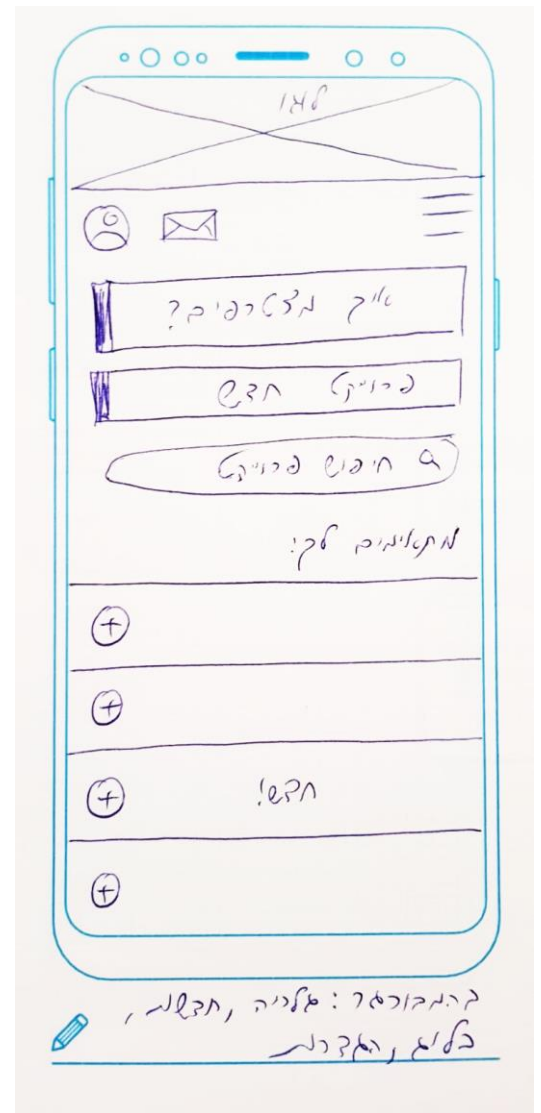 לוגו
איך מצטרפים?
פרויקט חדש
חיפוש פרוייקט
מתאימים לך:
חדש!
בהמבורגר: גלריה, חדשות,
בלוג, הגדרות